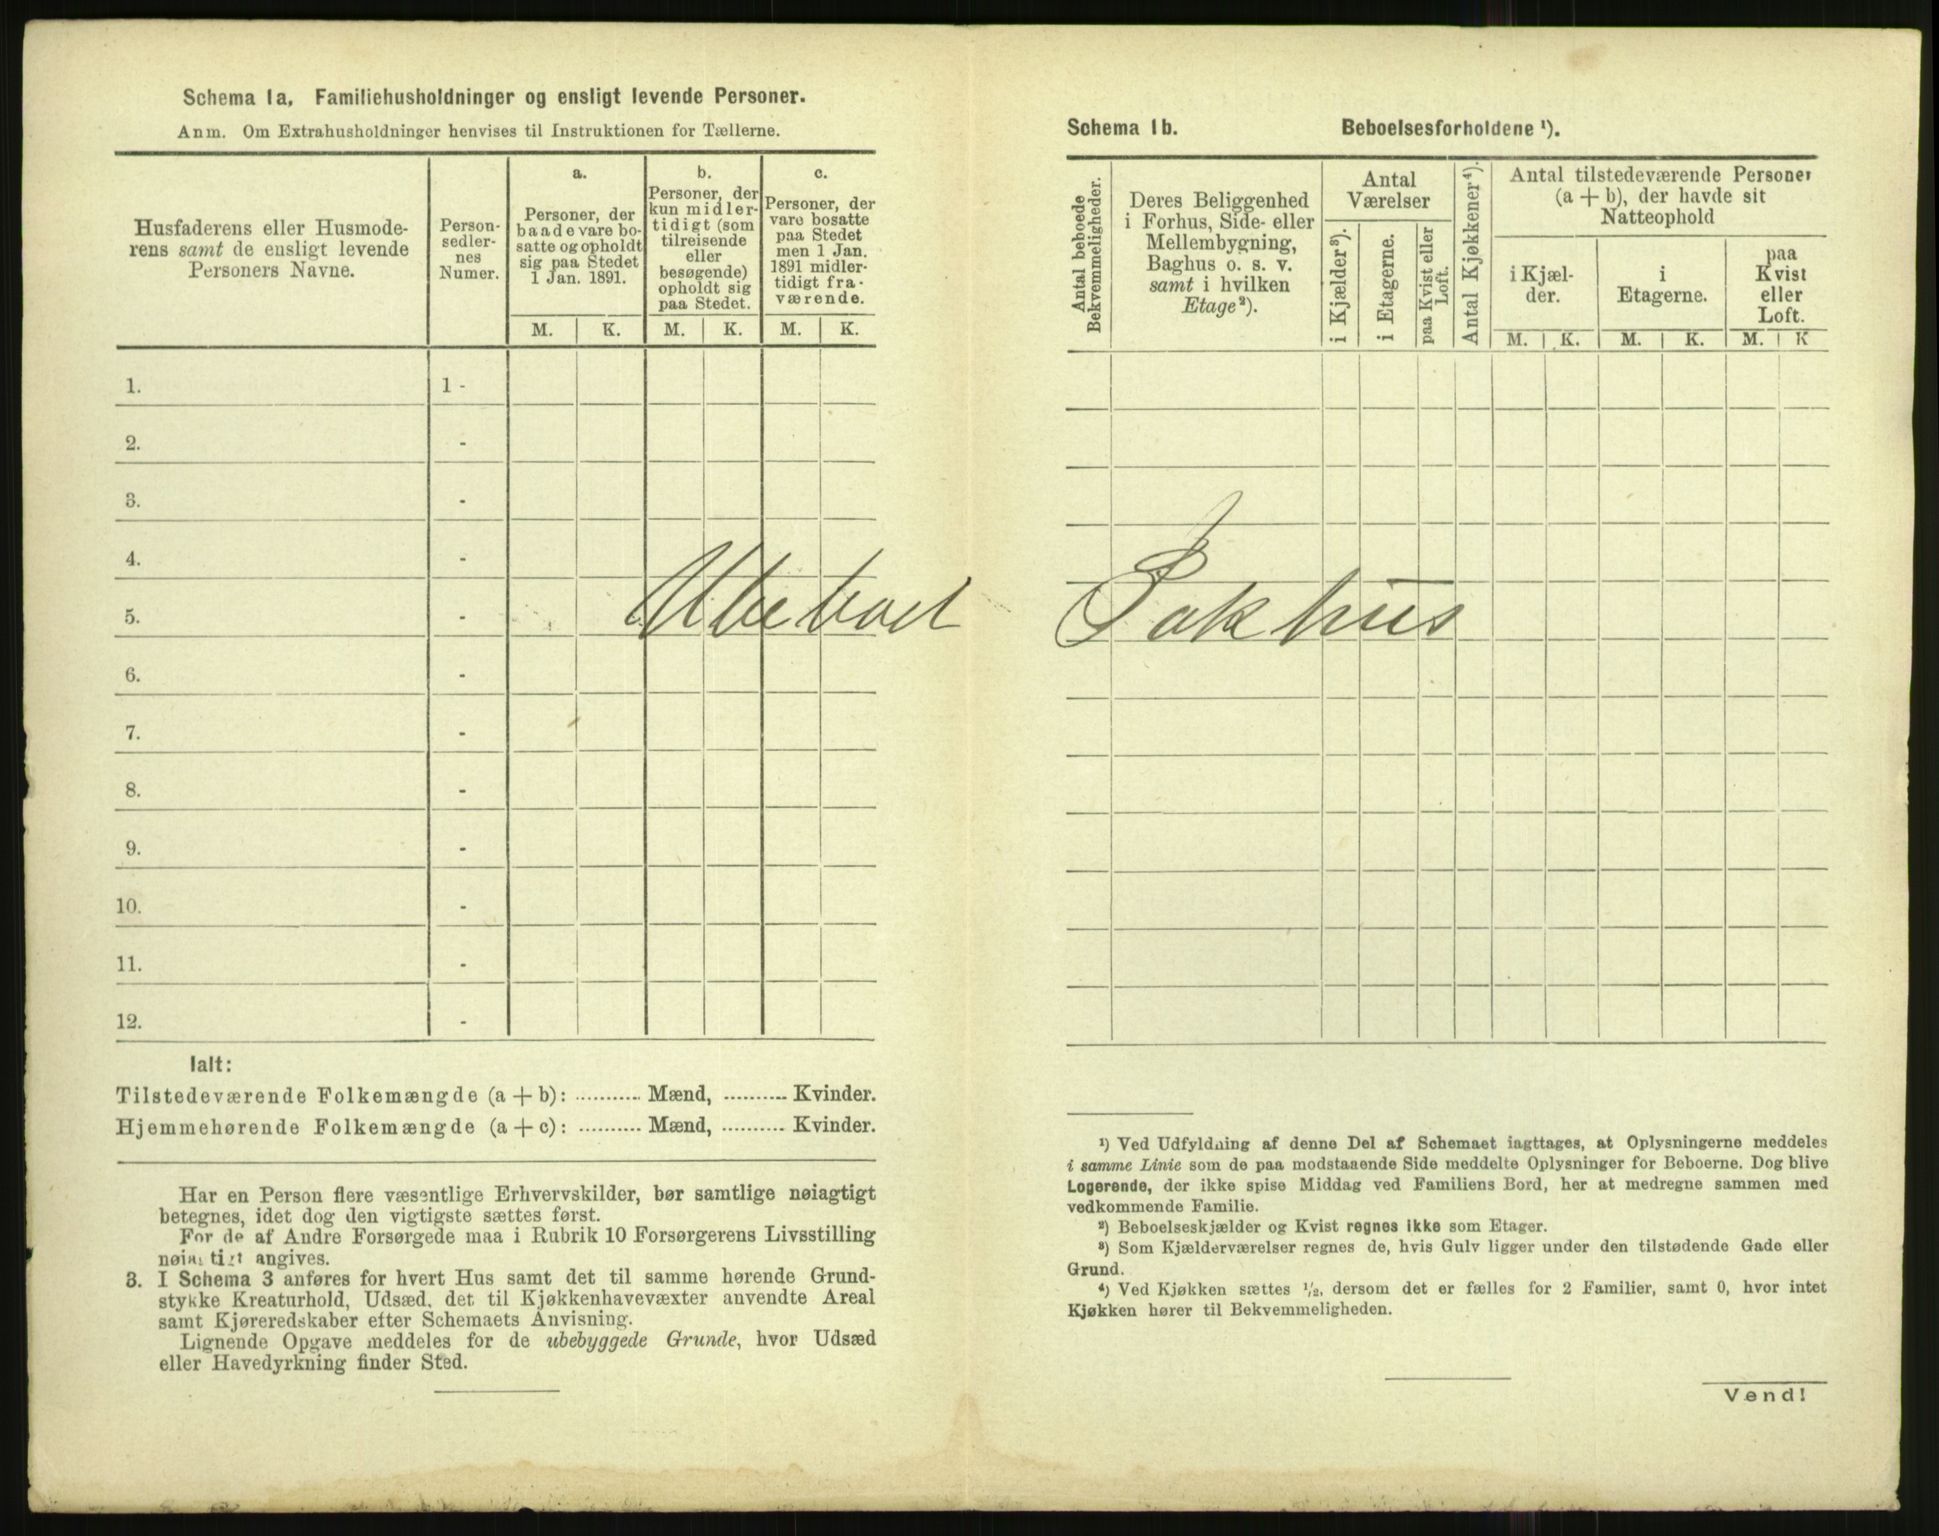 Schema 1a. Familiehusholdninger og ensligt levende Personer.
Anm. Om Extrahusholdninger henvises til Instruktionen for Tællerne.
Husfaderens eller Husmode-
rens samt de ensligt levende
Personers Navne.
Person-
sedler-
nes
Numer.
a.
Personer, der
baade vare bo-
satte og opholdt
sig paa Stedet
1 Jan. 1891.
b.
Personer, der
kun midler-
tidigt (som
tilreisende
eller
besøgende)
opholdt sig
paa Stedet.
c.
Personer, der
vare bosatte
paa Stedet
men 1 Jan.
1891 midler-
tidigt fra-
værende.
M. K. M. K. M. K.
1. 1 -
2. -
3. -
4. -
5. -
6. -
7. -
8. -
9. -
10. -
11. -
12. -
Ubeboet Pakhus
Ialt:
Tilstedeværende Folkemængde (a + b): .......... Mænd, .......... Kvinder.
Hjemmehørende Folkemængde (a + c): .......... Mænd, .......... Kvinder.
Har en Person flere væsentlige Erhvervskilder, bør samtlige nøiagtigt
betegnes, idet dog den vigtigste sættes først.
For de af Andre Forsørgede maa i Rubrik 10 Forsørgerens Livsstilling
nøiagtigt angives.
3. I Schema 3 anføres for hvert Hus samt det til samme hørende Grund-
stykke Kreaturhold, Udsæd, det til Kjøkkenhavevæxter anvendte Areal
samt Kjøreredskaber efter Schemaets Anvisning.
Lignende Opgave meddeles for de ubebyggede Grunde, hvor Udsæd
eller Havedyrkning finder Sted.
Schema 1b. Beboelsesforholdene ¹).
Antal beboede
Bekvemmeligheder.
Deres Beliggenhed
i Forhus, Side- eller
Mellembygning,
Baghus o. s. v.
samt i hvilken
Etage²).
Antal
Værelser
i Kjælder³).
i Etagerne.
paa Kvist eller
Loft.
Antal Kjøkkener⁴).
Antal tilstedeværende Personer
(a + b), der havde sit
Natteophold
i Kjæl-
der.
i
Etagerne.
paa
Kvist
eller
Loft.
M. K. M. K. M. K
¹) Ved Udfyldning af denne Del af Schemaet iagttages, at Oplysningerne meddeles
i samme Linie som de paa modstaaende Side meddelte Oplysninger for Beboerne. Dog blive
Logerende, der ikke spise Middag ved Familiens Bord, her at medregne sammen med
vedkommende Familie.
²) Beboelseskjælder og Kvist regnes ikke som Etager.
³) Som Kjælderværelser regnes de, hvis Gulv ligger under den tilstødende Gade eller
Grund.
⁴) Ved Kjøkken sættes ¹/₂, dersom det er fælles for 2 Familier, samt 0, hvor intet
Kjøkken hører til Bekvemmeligheden.
Vend!